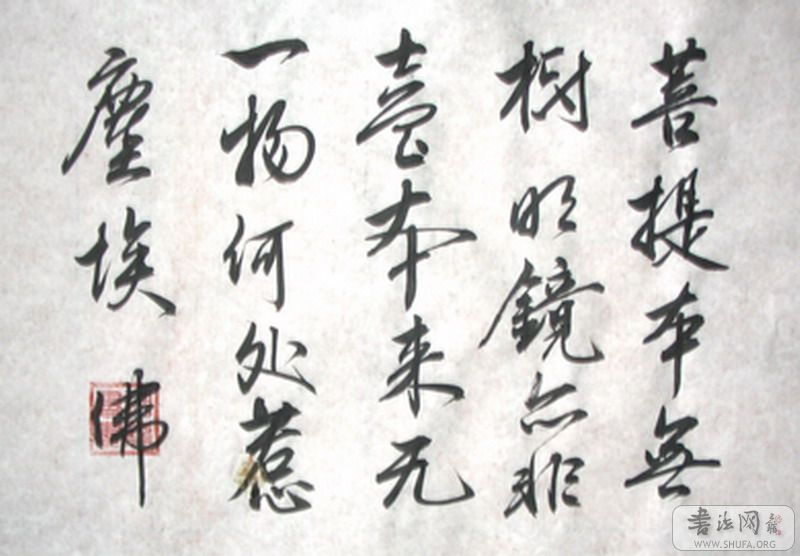 菩提本無
樹明鏡亦非
臺本来无
一物何处惹
塵埃
佛
书法网
WWW.SHUFA.ORG